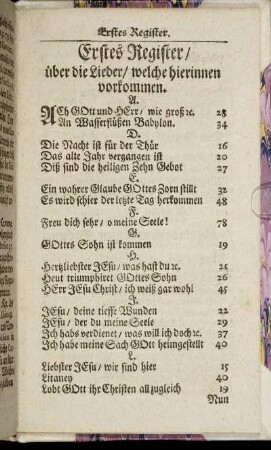 Erstes Register.
Erstes Register/
über die Lieder/ welche hierinnen
vorkommen.
A.
ACh GOtt und HErr/ wie groß ꝛc. 28
An Wasserflüßen Babylon. 34
D.
Die Nacht ist für der Thür 16
Das alte Jahr vergangen ist 20
Diß sind die heiligen Zehn Gebot 27
E.
Ein wahrer Glaube GOttes Zorn stillt 32
Es wird schier der letzte Tag herkommen 48
F.
Freu dich sehr/ o meine Seele! 78
G.
GOttes Sohn ist kommen 19
H.
Hertzliebster JEsu/ was hast du ꝛc. 21
Heut triumphiret GOttes Sohn 26
HErr JEsu Christ/ ich weiß gar wohl 45
J.
JEsu/ deine tieffe Wunden 22
JEsu/ der du meine Seele 29
Ich habs verdient/ was will ich doch ꝛc. 37
Ich habe meine Sach GOtt heimgestellt 40
L.
Liebster JEsu/ wir sind hier 15
Litaney 40
Lobt GOtt ihr Christen allzugleich 19
Nun